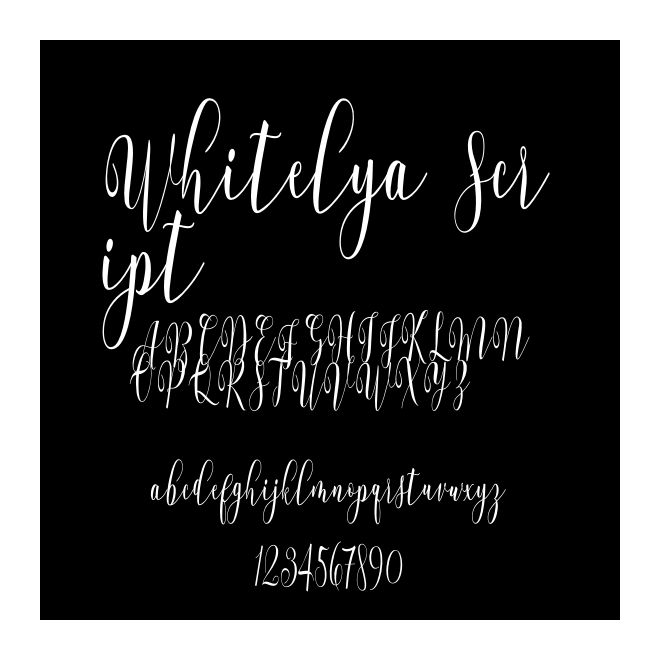 Whitelya Scr
ipt
ABCDEFGHIJKLMN
OPQRSTUVWXYZ
abcdefghijklmnopqrstuvwxyz
1234567890